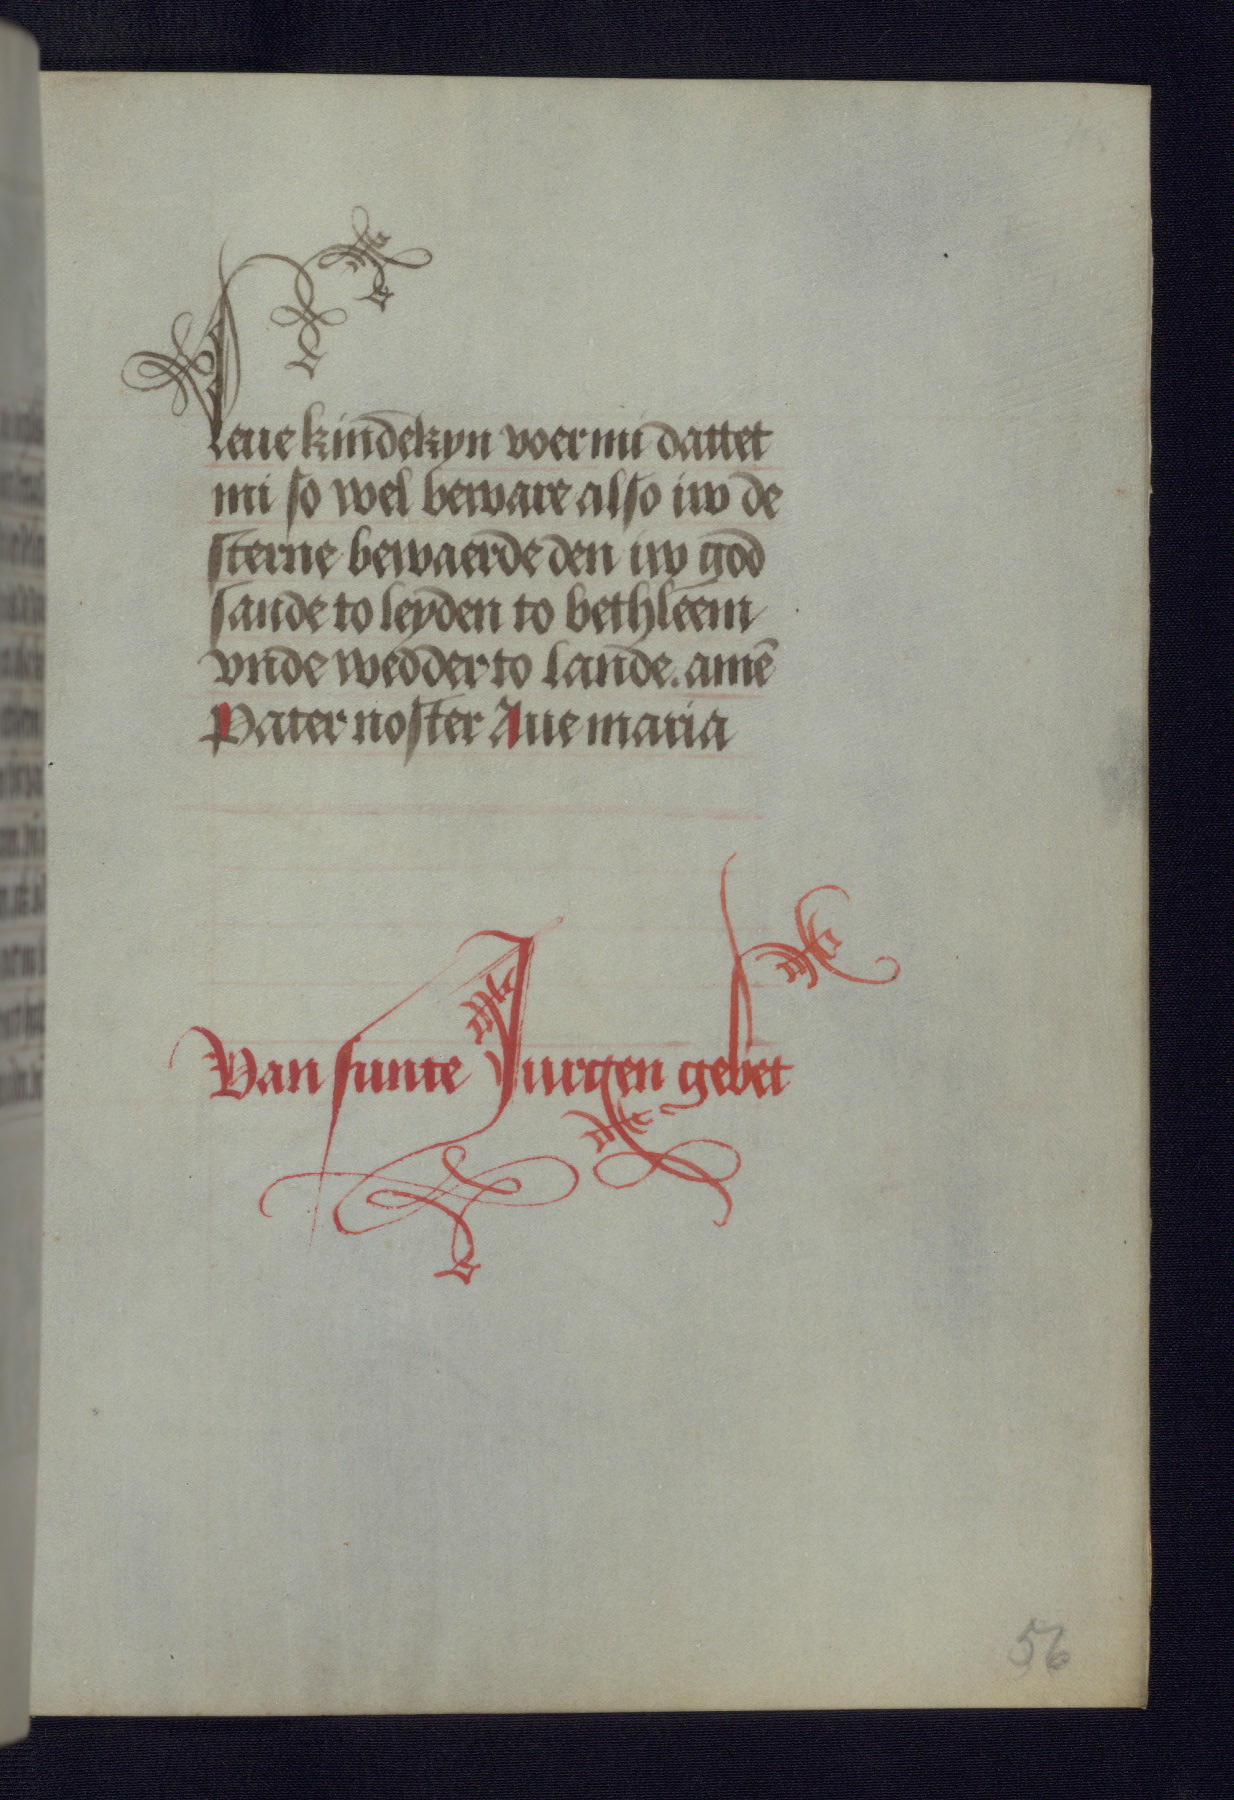 leue kindekyn voer mi dattet
mi so wel beware also iw de
sterne bewaerde den iw god
sande to leyden to bethleem
vnde wedder to lande. amē
Pater noster Aue maria
Van sunte Jurgen gebet
56